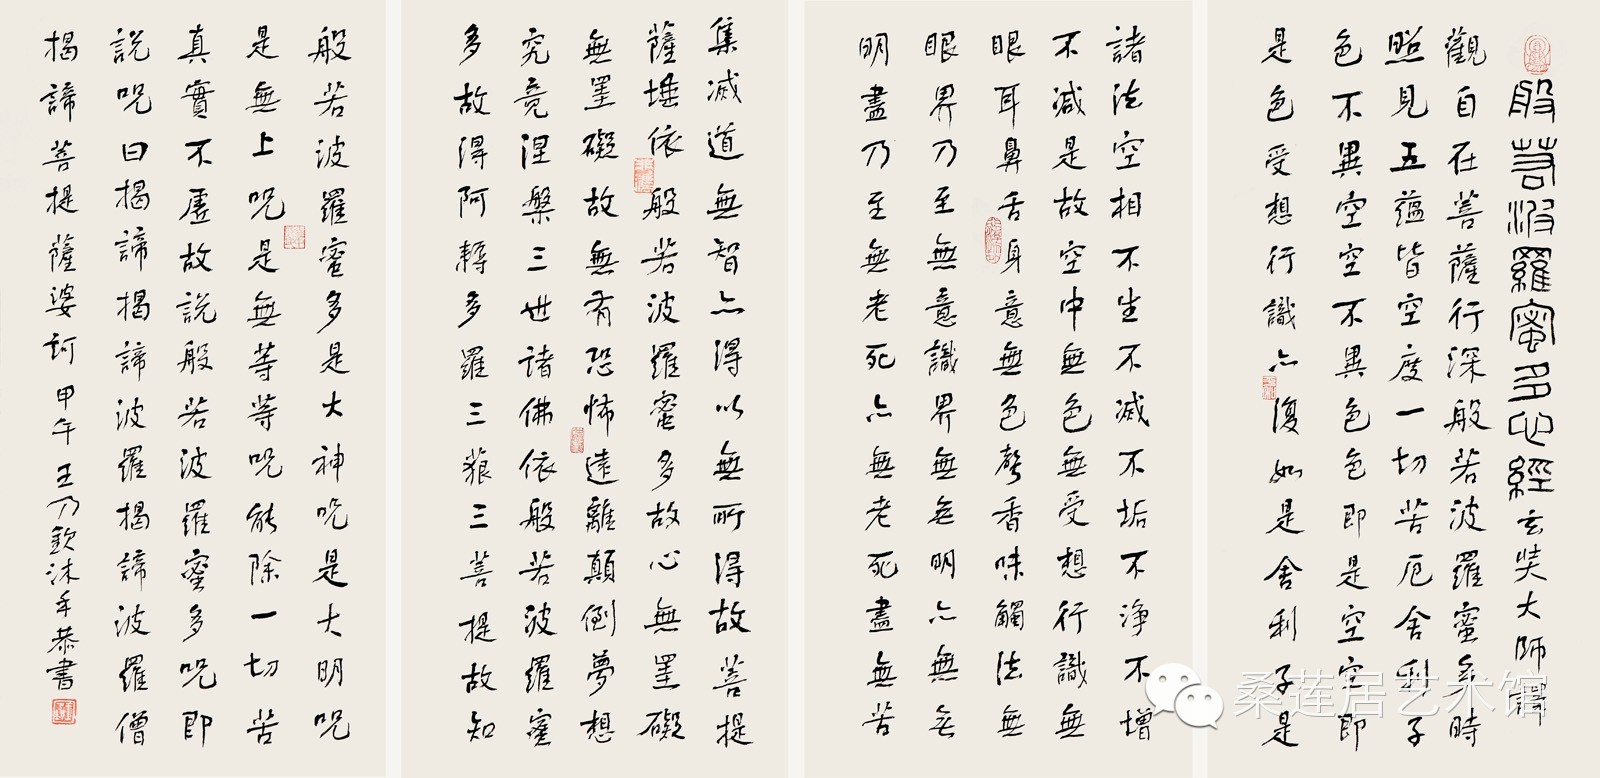 般若波羅蜜多心經 玄奘大師譯
觀自在菩薩行深般若波羅蜜多時
照見五蘊皆空度一切苦厄舍利子
色不異空空不異色色即是空空即
是色受想行識亦復如是舍利子是
諸法空相不生不滅不垢不淨不增
不減是故空中無色無受想行識無
眼耳鼻舌身意無色聲香味觸法無
眼界乃至無意識界無無明亦無無
明盡乃至無老死亦無老死盡無苦
集滅道無智亦得以無所得故菩提
薩埵依般若波羅蜜多故心無罣礙
無罣礙故無有恐怖遠離顛倒夢想
究竟涅槃三世諸佛依般若波羅蜜
多故得阿耨多羅三藐三菩提故知
般若波羅蜜多是大神咒是大明咒
是無上咒是無等等咒能除一切苦
真實不虛故説般若波羅蜜多咒即
説咒曰揭諦揭諦波羅揭諦波羅僧
揭諦菩提薩婆訶 甲午王乃欽沐手恭書
桑莲居艺术馆